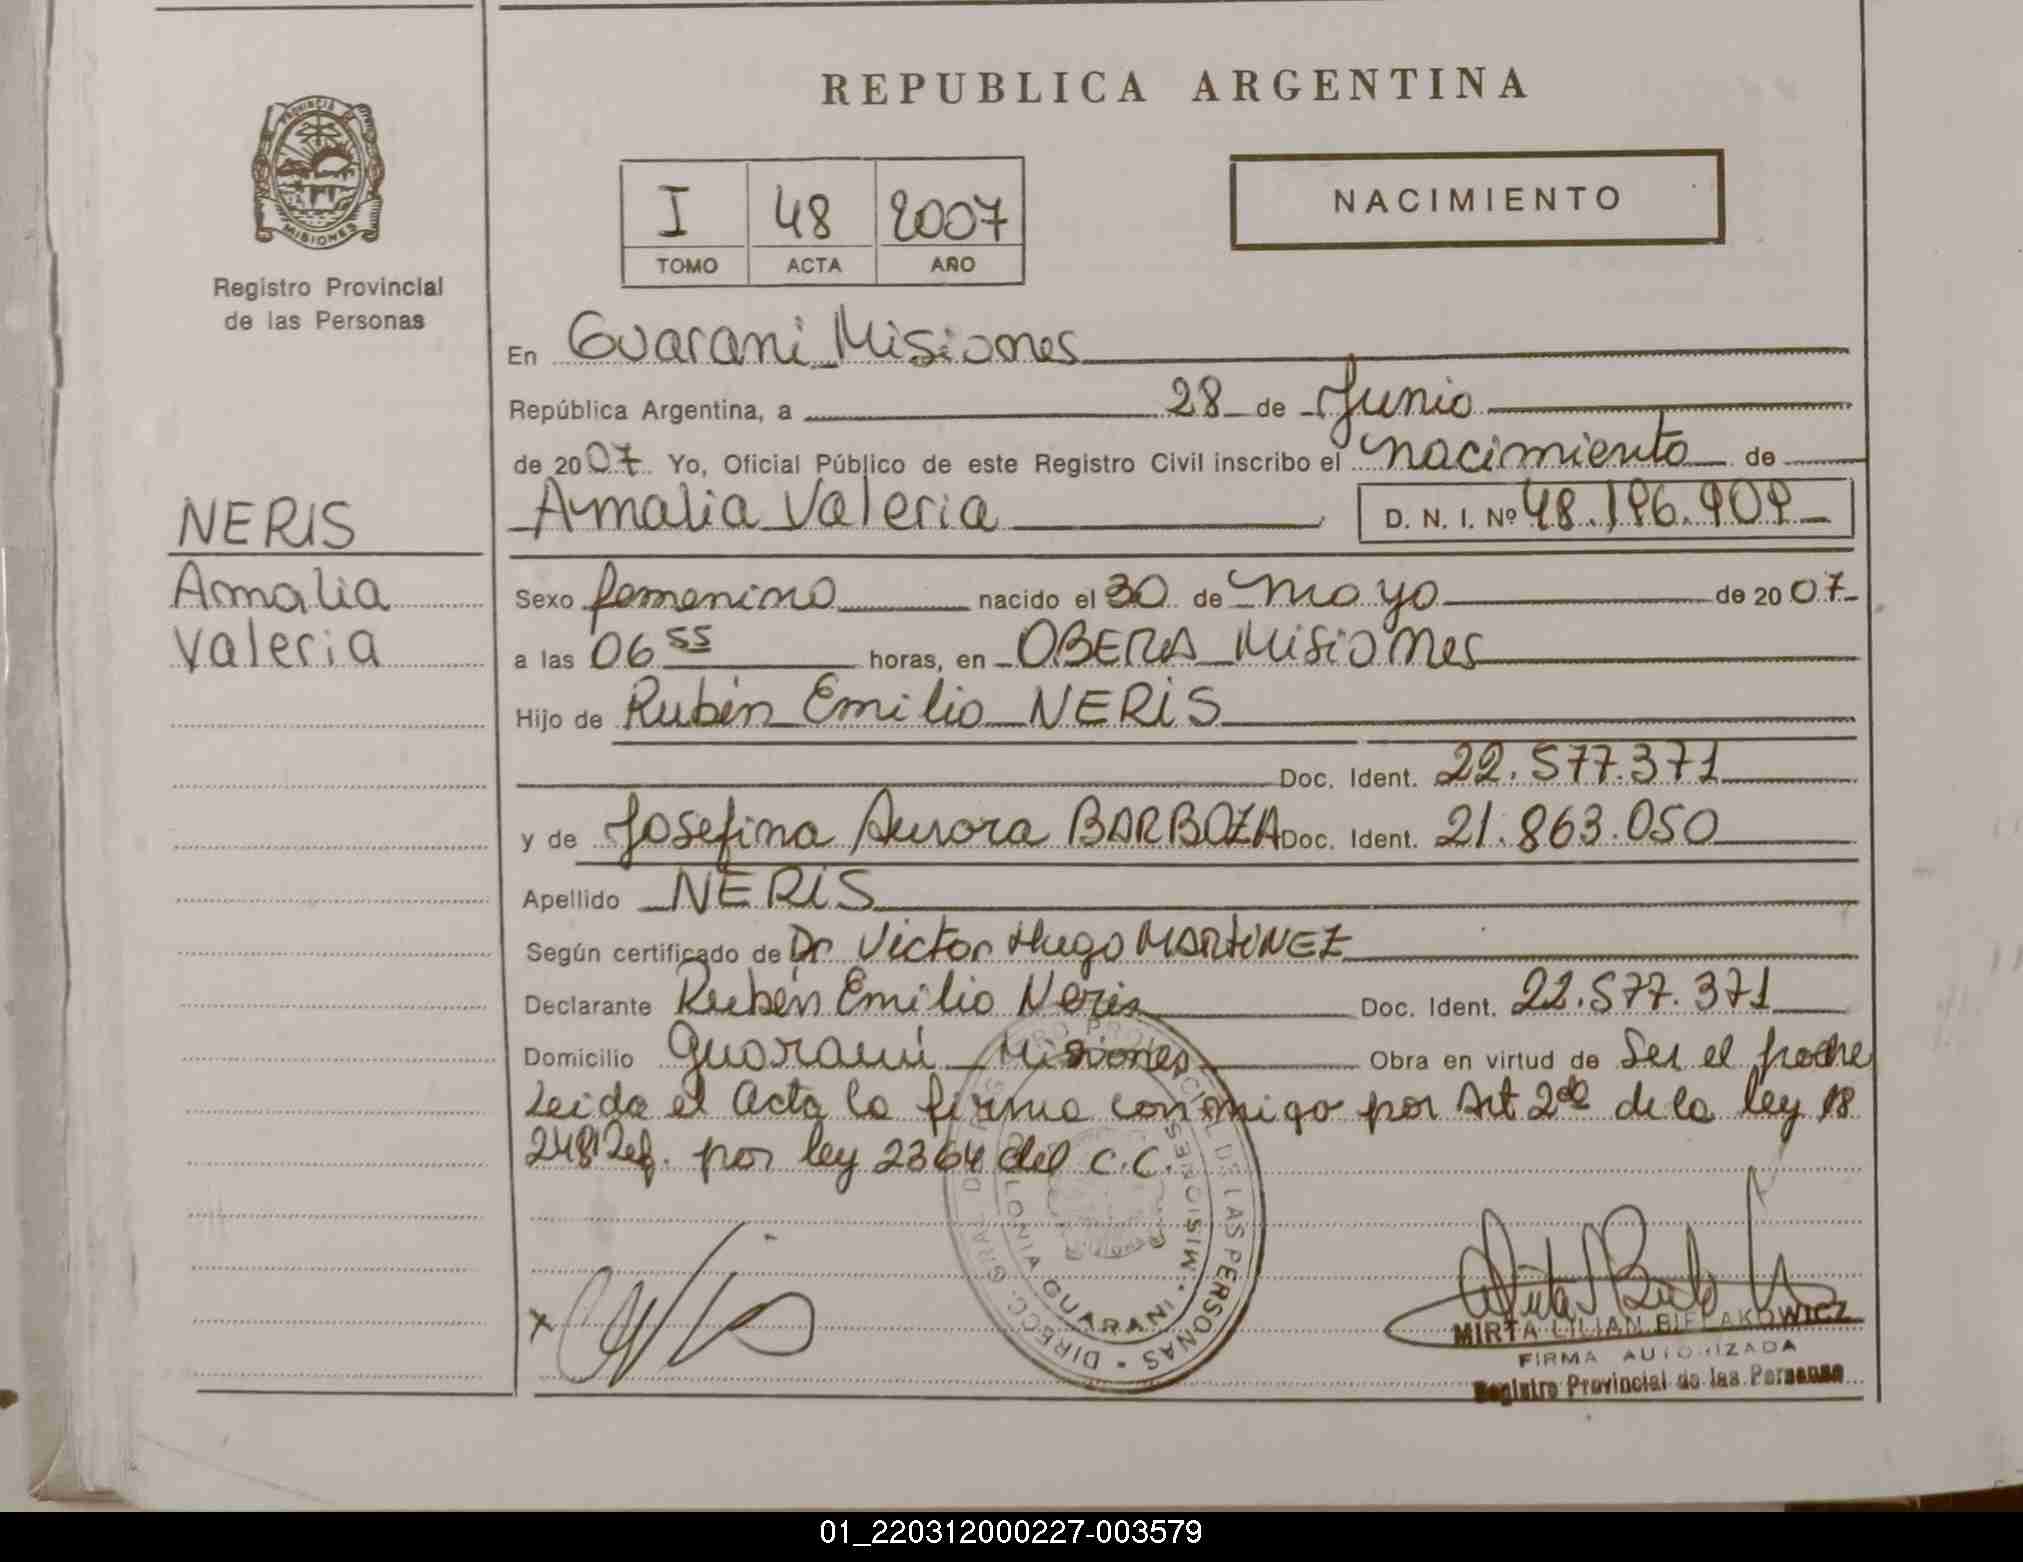 REPUBLICA ARGENTINA
PROVINCIA
MISIONES
Registro Provincial
de las Personas
I 48 2007
TOMO ACTA AÑO
NACIMIENTO
En Guarani Misiones
República Argentina, a 28 de Junio
de 2007 Yo, Oficial Público de este Registro Civil inscribo el nacimiento de
NERIS
Amalia
Valeria
Amalia Valeria D. N. I. Nº 48.196.909
Sexo femenino nacido el 30 de mayo de 2007
a las 06 55 horas, en OBERA Misiones
Hijo de Rubén Emilio NERIS
Doc. Ident. 22.577.371
y de Josefina Aurora BARBOZA Doc. Ident. 21.863.050
Apellido NERIS
Según certificado de Dr Victor Hugo MARTINEZ
Declarante Rubén Emilio Neris Doc. Ident. 22.577.371
Domicilio Guaraní Misiones Obra en virtud de Ser el padre
Leida el Acta la firma conmigo por Art 2do de la ley 18
248 por ley 2364 del C.C.
DIRECC. GRAL. DE LAS PERSONAS
COLONIA GUARANI • MISIONES
MIRTA LILIAN BIELAKOWICZ
FIRMA AUTORIZADA
Registro Provincial de las Personas
01_220312000227-003579